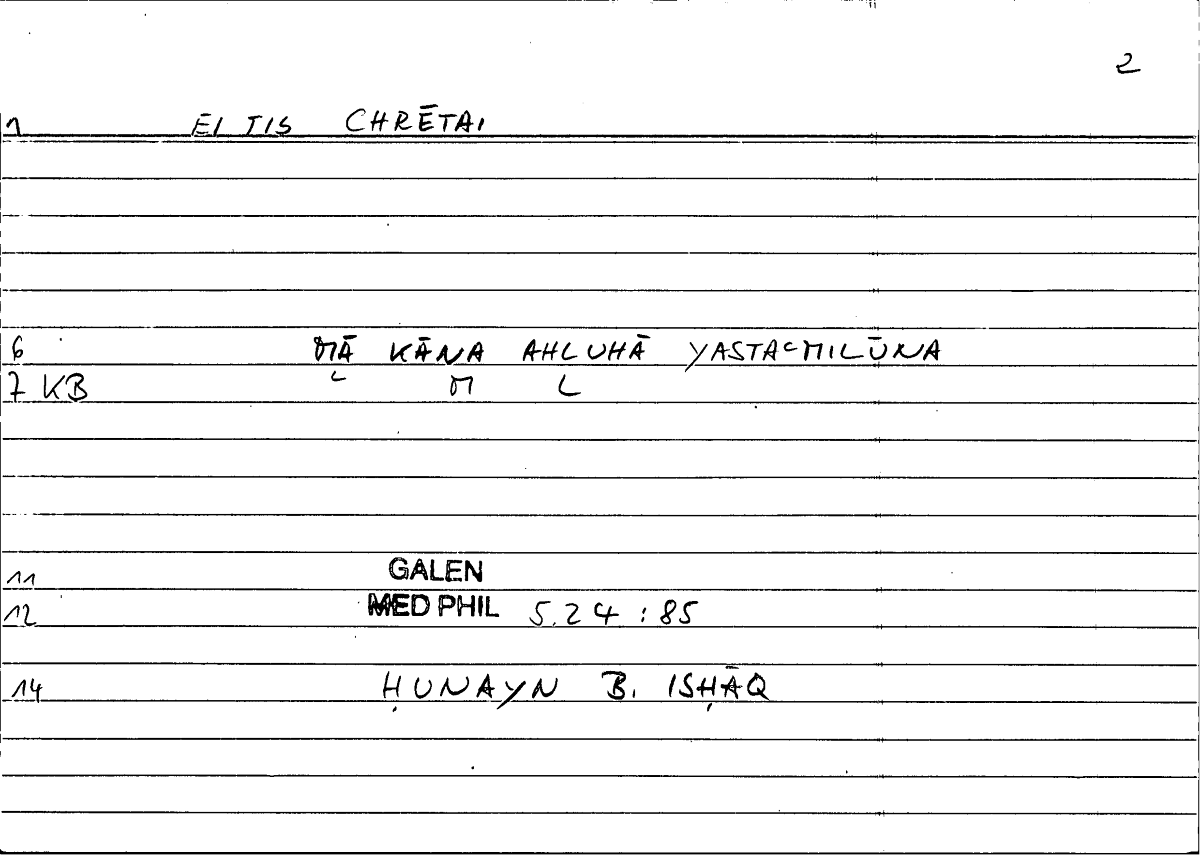 2
1 EI TIS CHRĒTAI
6 MĀ KĀNA AHLUHĀ YASTAᶜMILŪNA
7 KB ᶜ M L
11 GALEN
12 MED PHIL 5.24 :85
14 ḤUNAYN B. ISḤĀQ